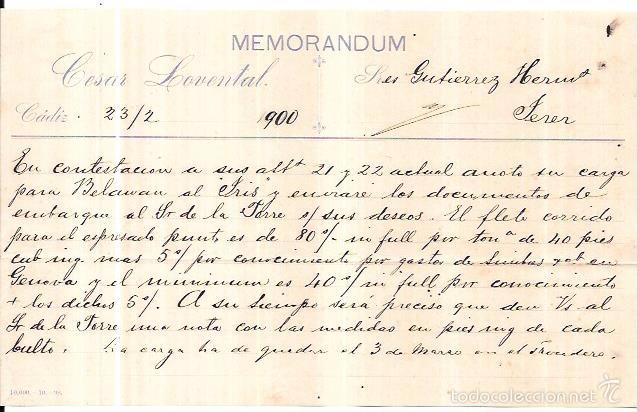 MEMORANDUM
César Lovental.
Sres Gutierrez Hermˢ
Cádiz 23/2 1900
Jerez
En contestación a sus attˢ 21 y 22 actual anoto su carga
para Belawan al "Iris" y enviaré los documentos de
embarque al Sr de la Torre s/ sus deseos. El flete corrido
para el espresado punto es de 80/- in full por tonª de 40 pies
cub ing mas 5/ por conocimiento por gastos de en
Genova y el minimum es 40/ in full por conocimiento
+ los dichos 5/. A su tiempo será preciso que den Vs al
Sr de la Torre una nota con las medidas en pies ing de cada
bulto. La carga ha de quedar el 3 de Marzo en el Trocadero.
10,000.-10.-98.
todocoleccion.net